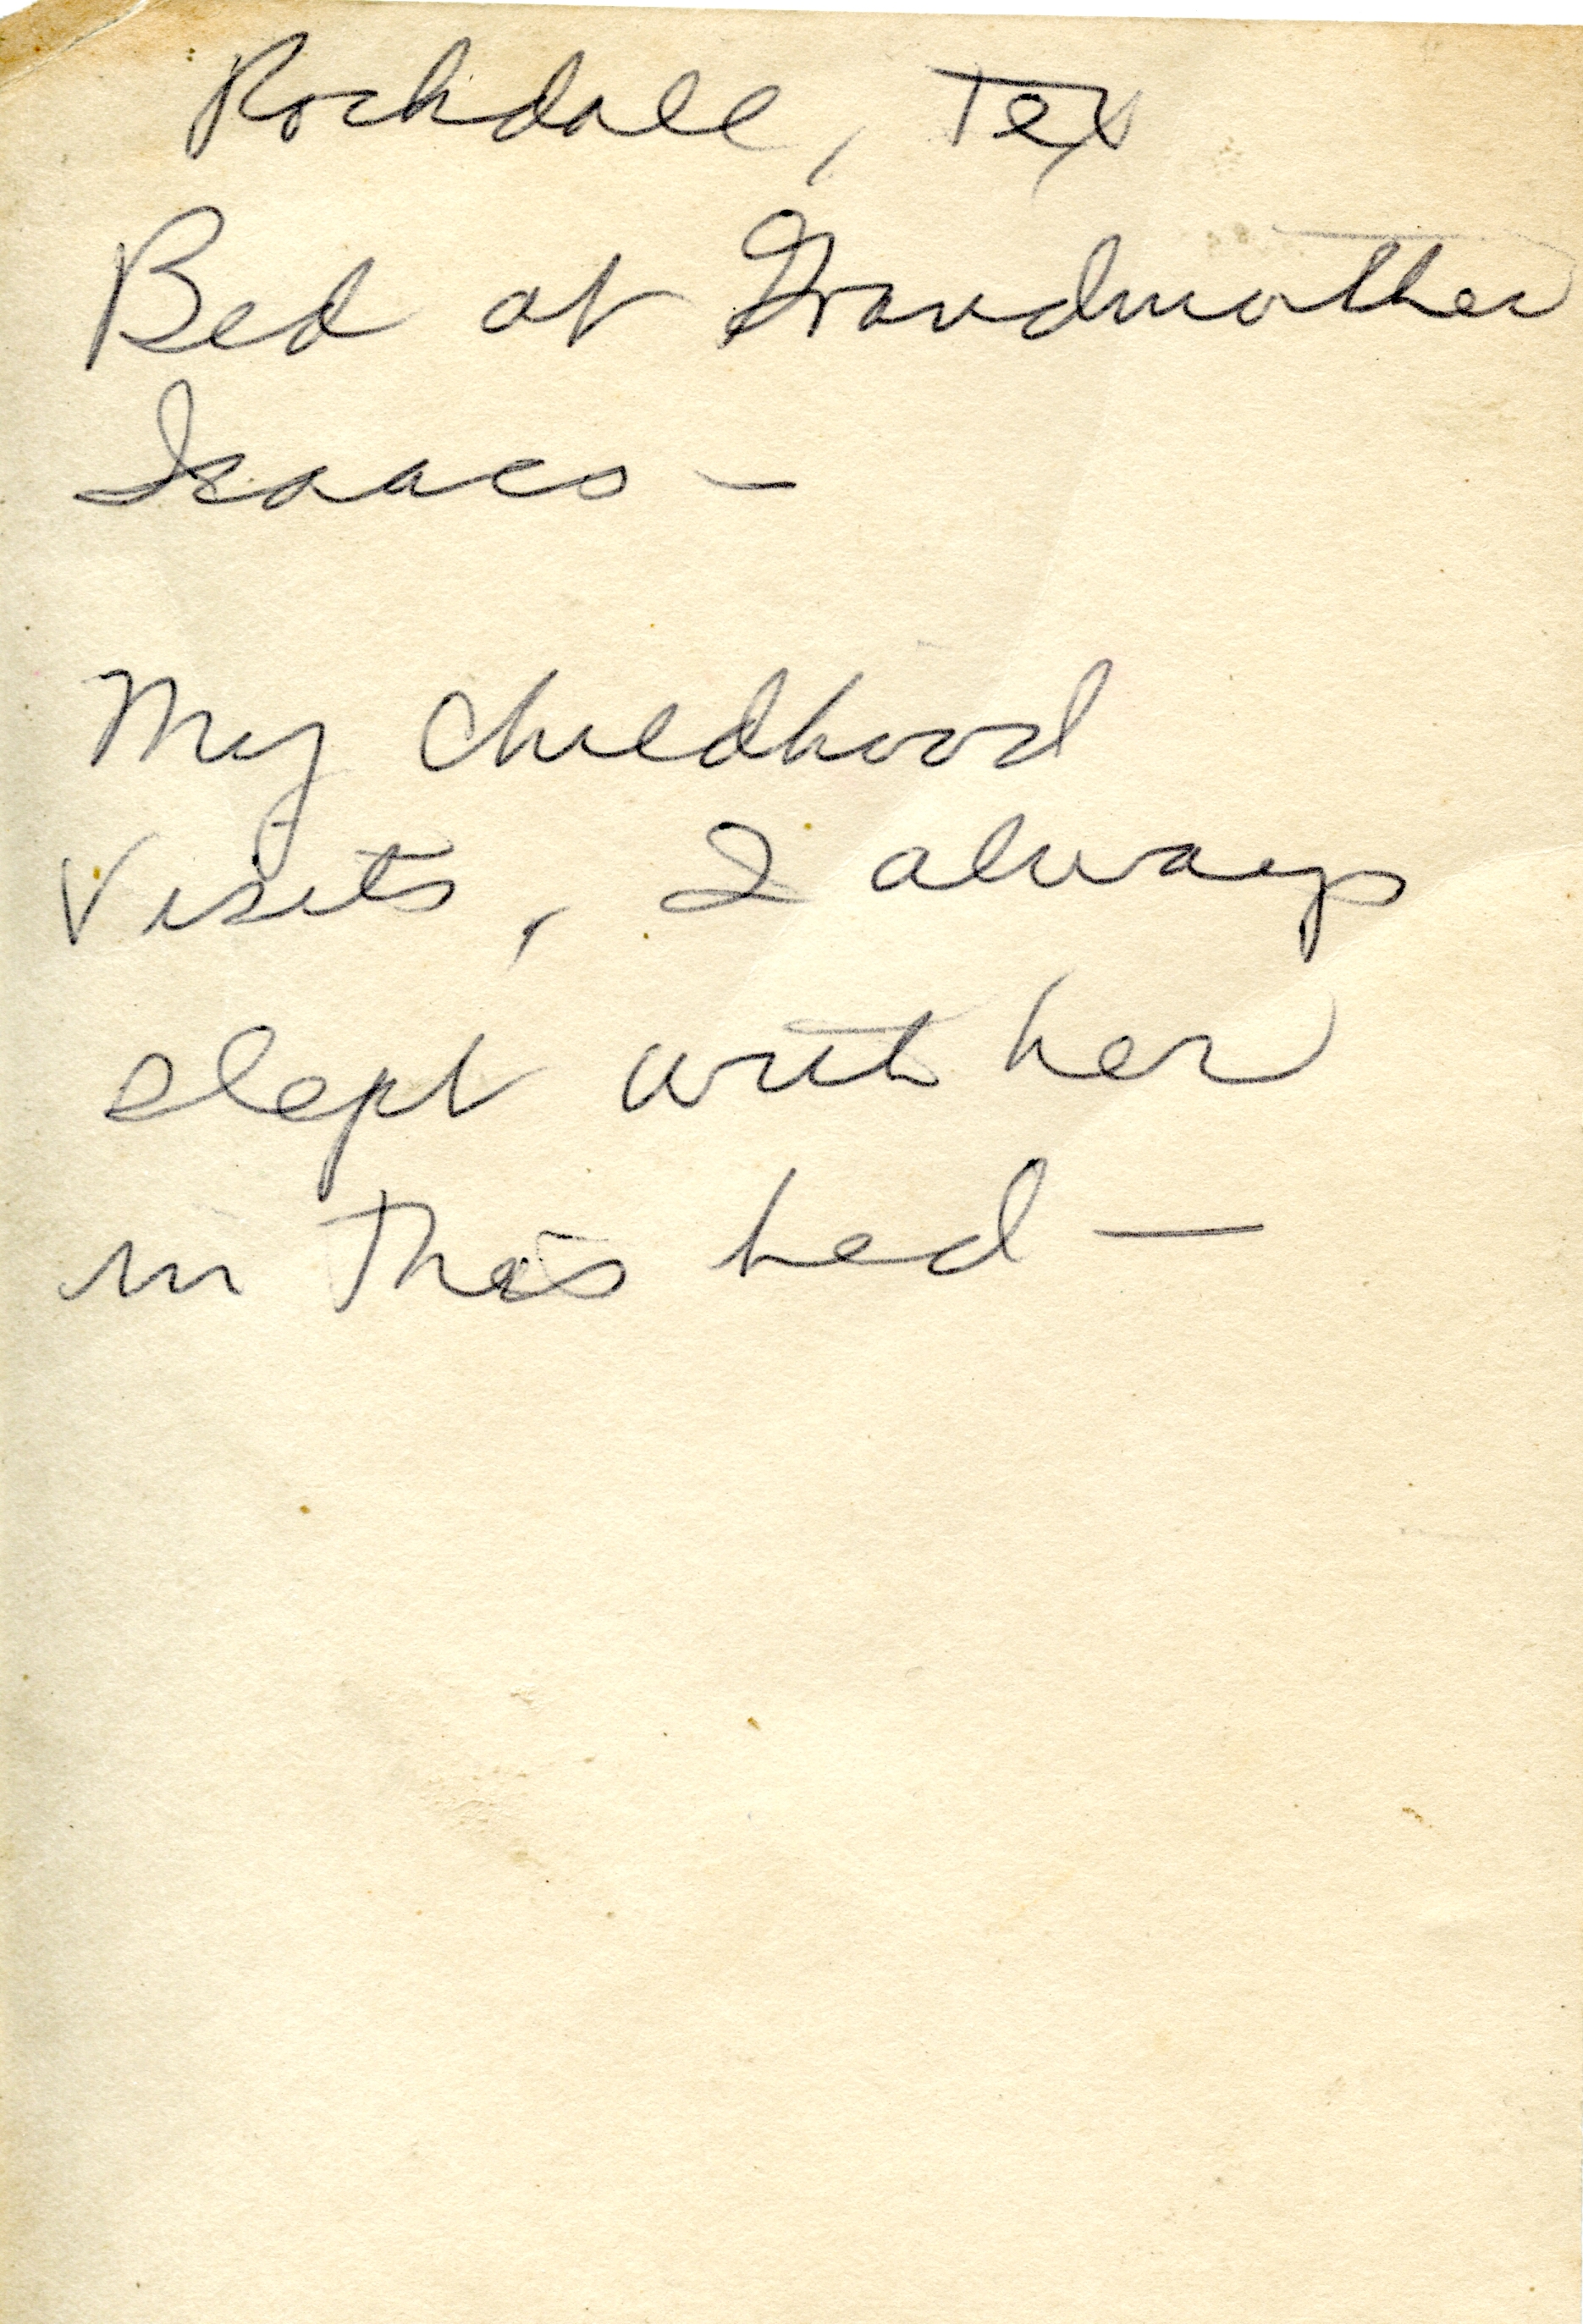 Rockdale, Tex
Bed at Grandmother
Isaacs -
My childhood
visits, I always
slept with her
in this bed -